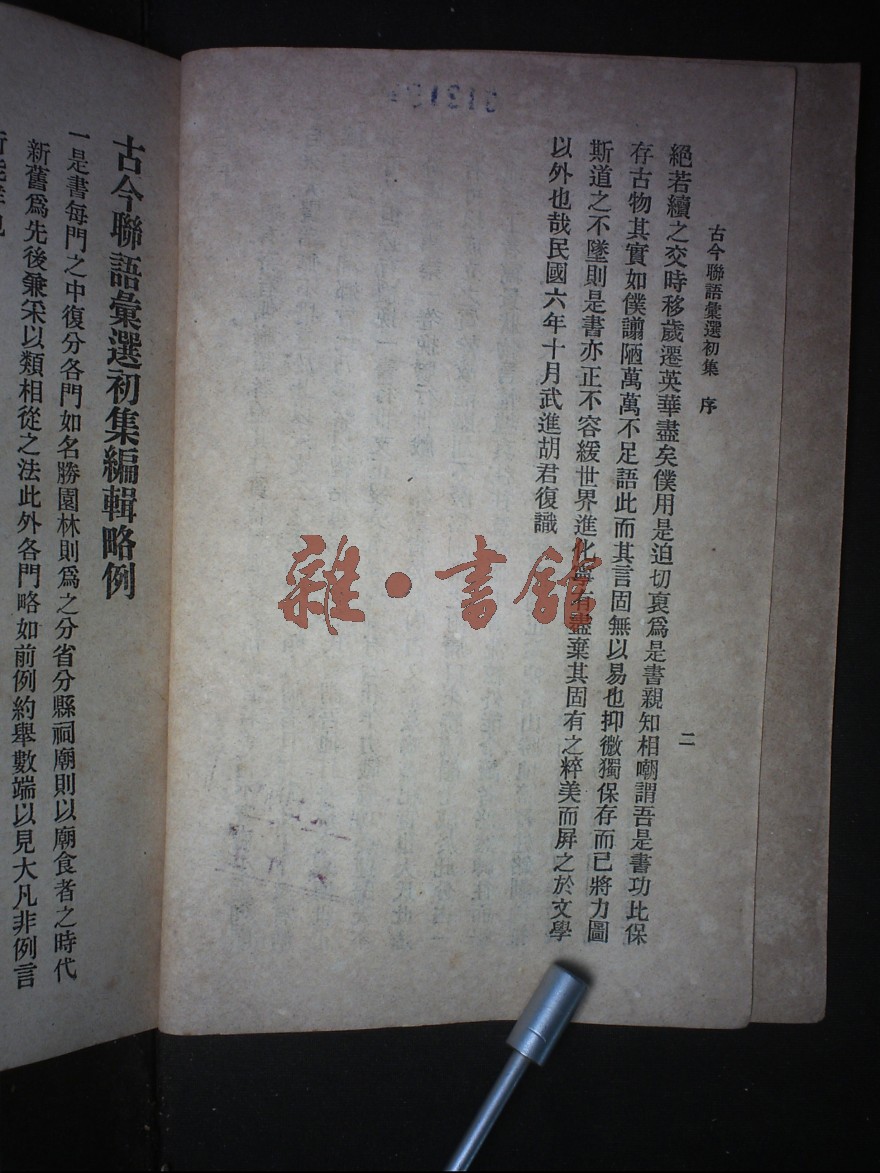 古今聯語彙選初集 序
二
絕若續之交時移歲遷英華盡矣僕用是迫切裒爲是書親知相嘲謂吾是書功比保
存古物其實如僕謭陋萬萬不足語此而其言固無以易也抑微獨保存而已將力圖
斯道之不墜則是書亦正不容緩世界進化寧有盡棄其固有之粹美而屏之於文學
以外也哉民國六年十月武進胡君復識
古今聯語彙選初集編輯略例
一是書每門之中復分各門如名勝園林則爲之分省分縣祠廟則以廟食者之時代
新舊爲先後兼采以類相從之法此外各門略如前例約舉數端以見大凡非例言
雜·書館